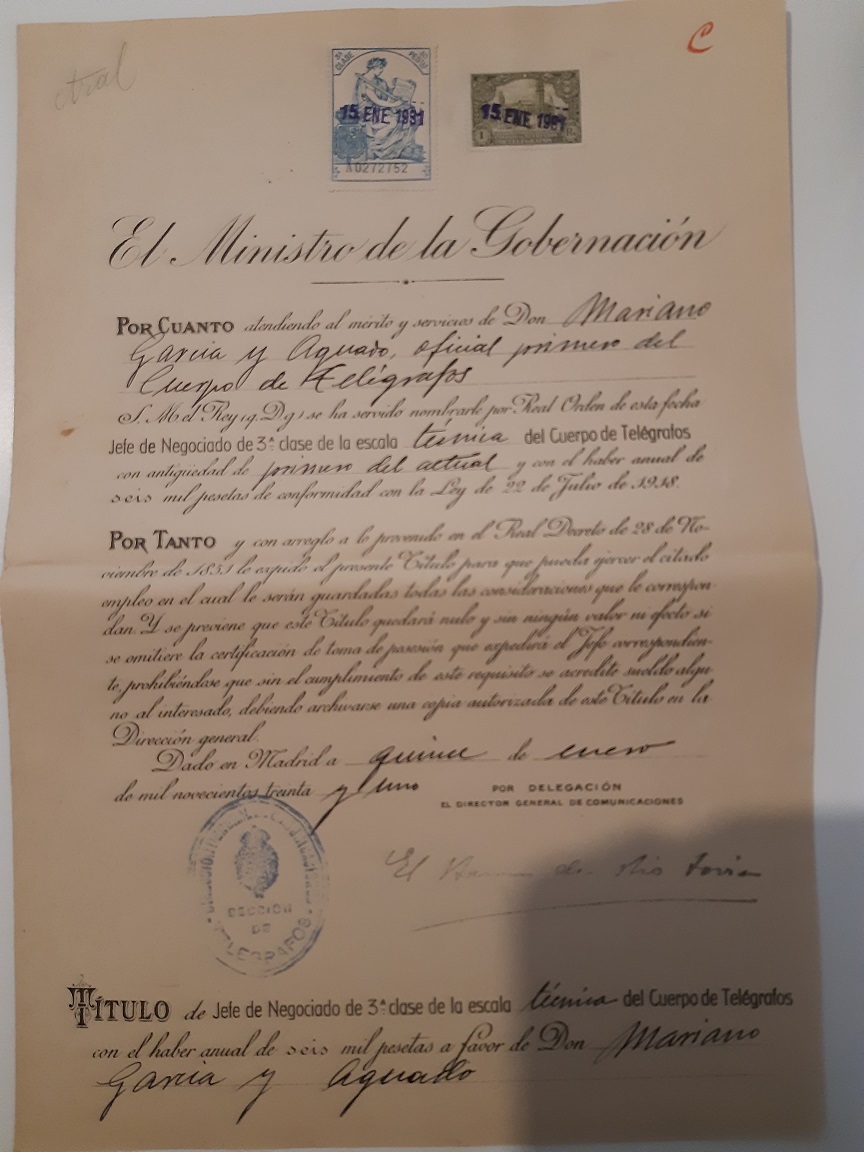 C
15 ENE 1931
15 ENE 1931
A0272752
El Ministro de la Gobernación
POR CUANTO atendiendo al mérito y servicios de Don Mariano
Garcia y Aguado, oficial primero del
Cuerpo de Telégrafos
S. M. el Rey (q. D. g.) se ha servido nombrarle por Real Orden de esta fecha
Jefe de Negociado de 3ª clase de la escala técnica del Cuerpo de Telégrafos
con antigüedad de primero del actual y con el haber anual de
seis mil pesetas de conformidad con la Ley de 22 de Julio de 1918.
POR TANTO y con arreglo a lo prevenido en el Real Decreto de 28 de No-
viembre de 1851 le expido el presente Título para que pueda ejercer el citado
empleo en el cual le serán guardadas todas las consideraciones que le correspon-
dan. Y se previene que este Título quedará nulo y sin ningún valor ni efecto si
se omitiere la certificación de toma de posesión que expedirá el Jefe correspondien-
te, prohibiéndose que sin el cumplimiento de este requisito se acredite sueldo algu-
no al interesado, debiendo archivarse una copia autorizada de este Título en la
Dirección general.
Dado en Madrid a quince de enero
de mil novecientos treinta y uno
POR DELEGACIÓN
EL DIRECTOR GENERAL DE COMUNICACIONES
El
SECCIÓN
DE
TELEGRAFOS
TÍTULO de Jefe de Negociado de 3ª clase de la escala técnica del Cuerpo de Telégrafos
con el haber anual de seis mil pesetas a favor de Don Mariano
Garcia y Aguado